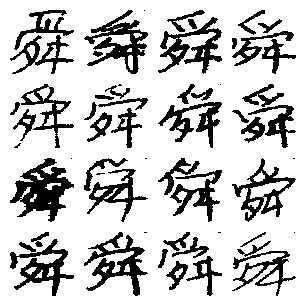 舜舜舜舜
舜舜舜舜
舜舜舜舜
舜舜舜舜